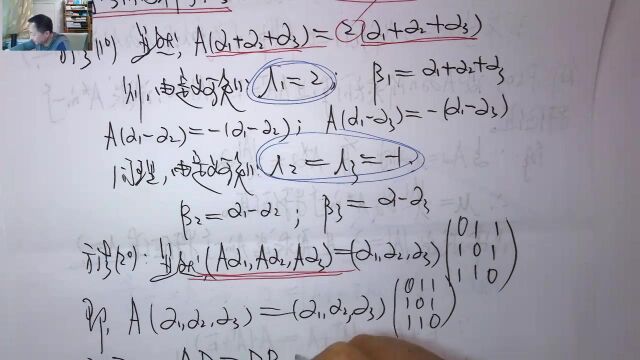 方法(1°) A(α₁+α₂+α₃)=2(α₁+α₂+α₃)
则, 由定义可知: λ₁=2; β₁=α₁+α₂+α₃
A(α₁-α₂)=-(α₁-α₂); A(α₁-α₃)=-(α₁-α₃)
同理, 由定义可知: λ₂=λ₃=-1.
β₂=α₁-α₂; β₃=α₁-α₃
方法(2°): (Aα₁,Aα₂,Aα₃)=(α₁,α₂,α₃)(0 1 1
1 0 1
1 1 0)
即, A(α₁,α₂,α₃)=(α₁,α₂,α₃)(0 1 1
1 0 1
1 1 0)